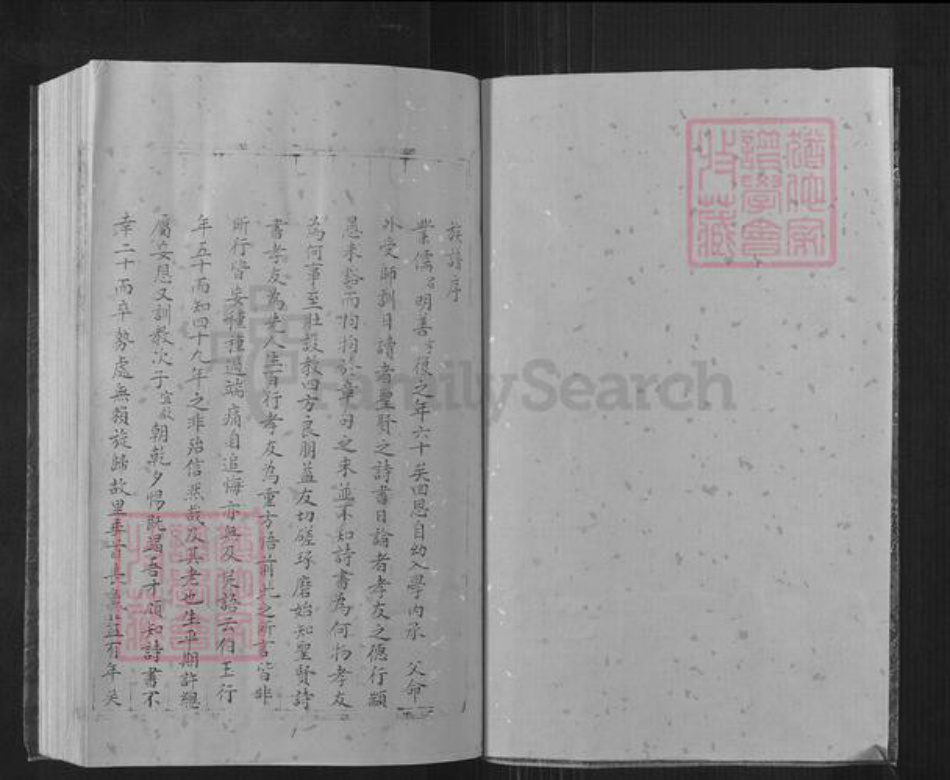 譜學會
收藏
族譜序
業儒名明善字復之年六十矣回思自幼入學內承 父命
外受師訓日讀者聖賢之詩書日論者孝友之德行顓
愚未豁而拘拘於章句之末並不知詩書為何物孝友
為何事至壯設教四方良朋益友切磋琢磨始知聖賢詩
書孝友為先人生百行孝友為重方悟前此之所言皆非
所行皆妄種種過端痛自追悔亦無及矣語云伯玉行
年五十而知四十九年之非殆信然哉及其老也生平期許總
屬妄想又訓教次子 朝乾夕惕既竭吾才頗知詩書不
幸二十而卒勢處無賴旋歸故里 有年矣
FamilySearch